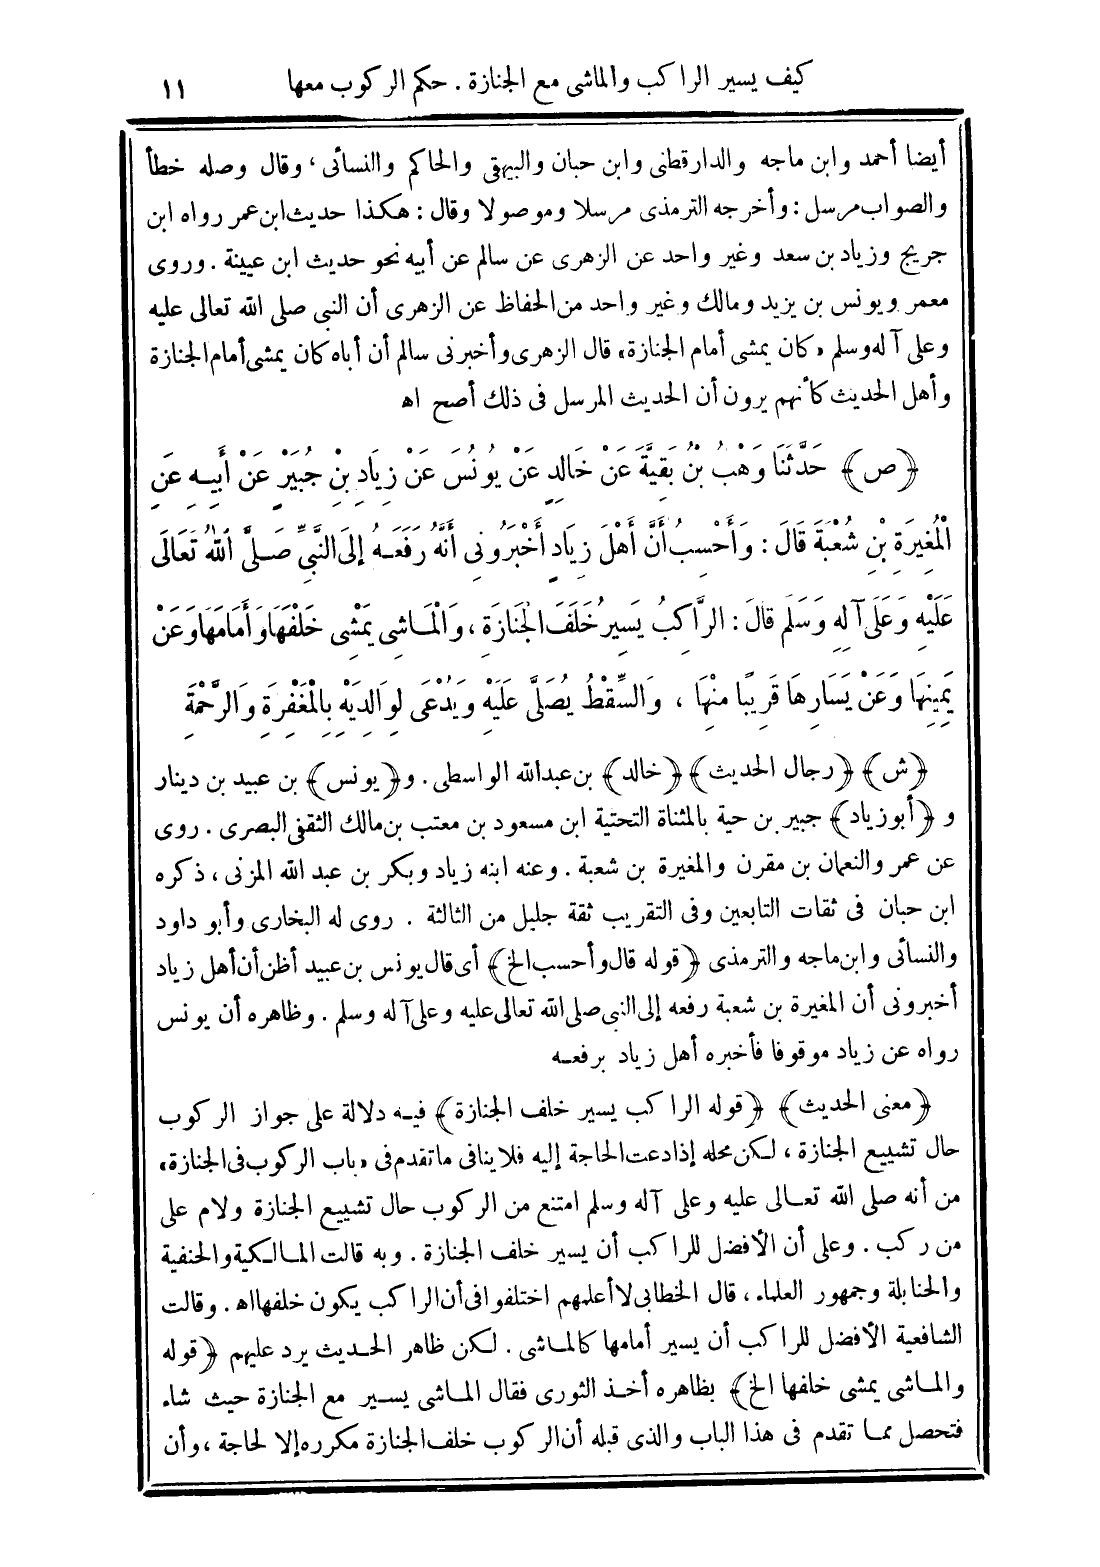 كيف يسير الراكب والماشى مع الجنازة . حكم الركوب معها ١١
أيضا أحمد وابن ماجه والدارقطنى وابن حبان والبيهقى والحاكم والنسائى ، وقال وصله خطأ
والصواب مرسل : وأخرجه الترمذى مرسلا وموصولا وقال : هكذا حديث ابن عمر رواه ابن
جريج وزياد بن سعد وغير واحد عن الزهرى عن سالم عن أبيه نحو حديث ابن عيينة . وروى
معمر ويونس بن يزيد ومالك وغير واحد من الحفاظ عن الزهرى أن النبى صلى الله تعالى عليه
وعلى آله وسلم «كان يمشى أمام الجنازة» قال الزهرى وأخبرنى سالم أن أباه كان يمشى أمام الجنازة
وأهل الحديث كأنهم يرون أن الحديث المرسل فى ذلك أصح اه
﴿ص﴾ حَدَّثَنَا وَهْبُ بْنُ بَقِيَّةَ عَنْ خَالِدٍ عَنْ يُونُسَ عَنْ زِيَادِ بْنِ جُبَيْرٍ عَنْ أَبِيهِ عَنِ
الْمُغِيرَةِ بْنِ شُعْبَةَ قَالَ : وَأَحْسِبُ أَنَّ أَهْلَ زِيَادٍ أَخْبَرُونِى أَنَّهُ رَفَعَهُ إِلَى النَّبِىِّ صَلَّى اللهُ تَعَالَى
عَلَيْهِ وَعَلَى آلِهِ وَسَلَّمَ قَالَ : الرَّاكِبُ يَسِيرُ خَلْفَ الْجَنَازَةِ ، وَالْمَاشِى يَمْشِى خَلْفَهَا وَأَمَامَهَا وَعَنْ
يَمِينِهَا وَعَنْ يَسَارِهَا قَرِيبًا مِنْهَا ، وَالسِّقْطُ يُصَلَّى عَلَيْهِ وَيُدْعَى لِوَالِدَيْهِ بِالْمَغْفِرَةِ وَالرَّحْمَةِ
﴿ش﴾ ﴿رجال الحديث﴾ ﴿خالد﴾ بن عبدالله الواسطى . و﴿يونس﴾ بن عبيد بن دينار
و ﴿أبوزياد﴾ جبير بن حية بالمثناة التحتية ابن مسعود بن معتب بن مالك الثقفى البصرى . روى
عن عمر والنعمان بن مقرن والمغيرة بن شعبة . وعنه ابنه زياد وبكر بن عبد الله المزنى ، ذكره
ابن حبان فى ثقات التابعين وفى التقريب ثقة جليل من الثالثة . روى له البخارى وأبو داود
والنسائى وابن ماجه والترمذى ﴿قوله قال وأحسب الخ﴾ أى قال يونس بن عبيد أظن أن أهل زياد
أخبرونى أن المغيرة بن شعبة رفعه إلى النبى صلى الله تعالى عليه وعلى آله وسلم . وظاهره أن يونس
رواه عن زياد موقوفا فأخبره أهل زياد برفعه
﴿معنى الحديث﴾ ﴿قوله الراكب يسير خلف الجنازة﴾ فيه دلالة على جواز الركوب
حال تشييع الجنازة ، لكن محله إذا دعت الحاجة إليه فلا ينافى ما تقدم فى «باب الركوب فى الجنازة»
من أنه صلى الله تعالى عليه وعلى آله وسلم امتنع من الركوب حال تشييع الجنازة ولام على
من ركب . وعلى أن الأفضل للراكب أن يسير خلف الجنازة . وبه قالت المالكية والحنفية
والحنابلة وجمهور العلماء ، قال الخطابى لا أعلمهم اختلفوا فى أن الراكب يكون خلفها اه . وقالت
الشافعية الأفضل للراكب أن يسير أمامها كالماشى . لكن ظاهر الحديث يرد عليهم ﴿قوله
والماشى يمشى خلفها الخ﴾ بظاهره أخذ الثورى فقال الماشى يسير مع الجنازة حيث شاء
فتحصل مما تقدم فى هذا الباب والذى قبله أن الركوب خلف الجنازة مكرره إلا لحاجة ، وأن